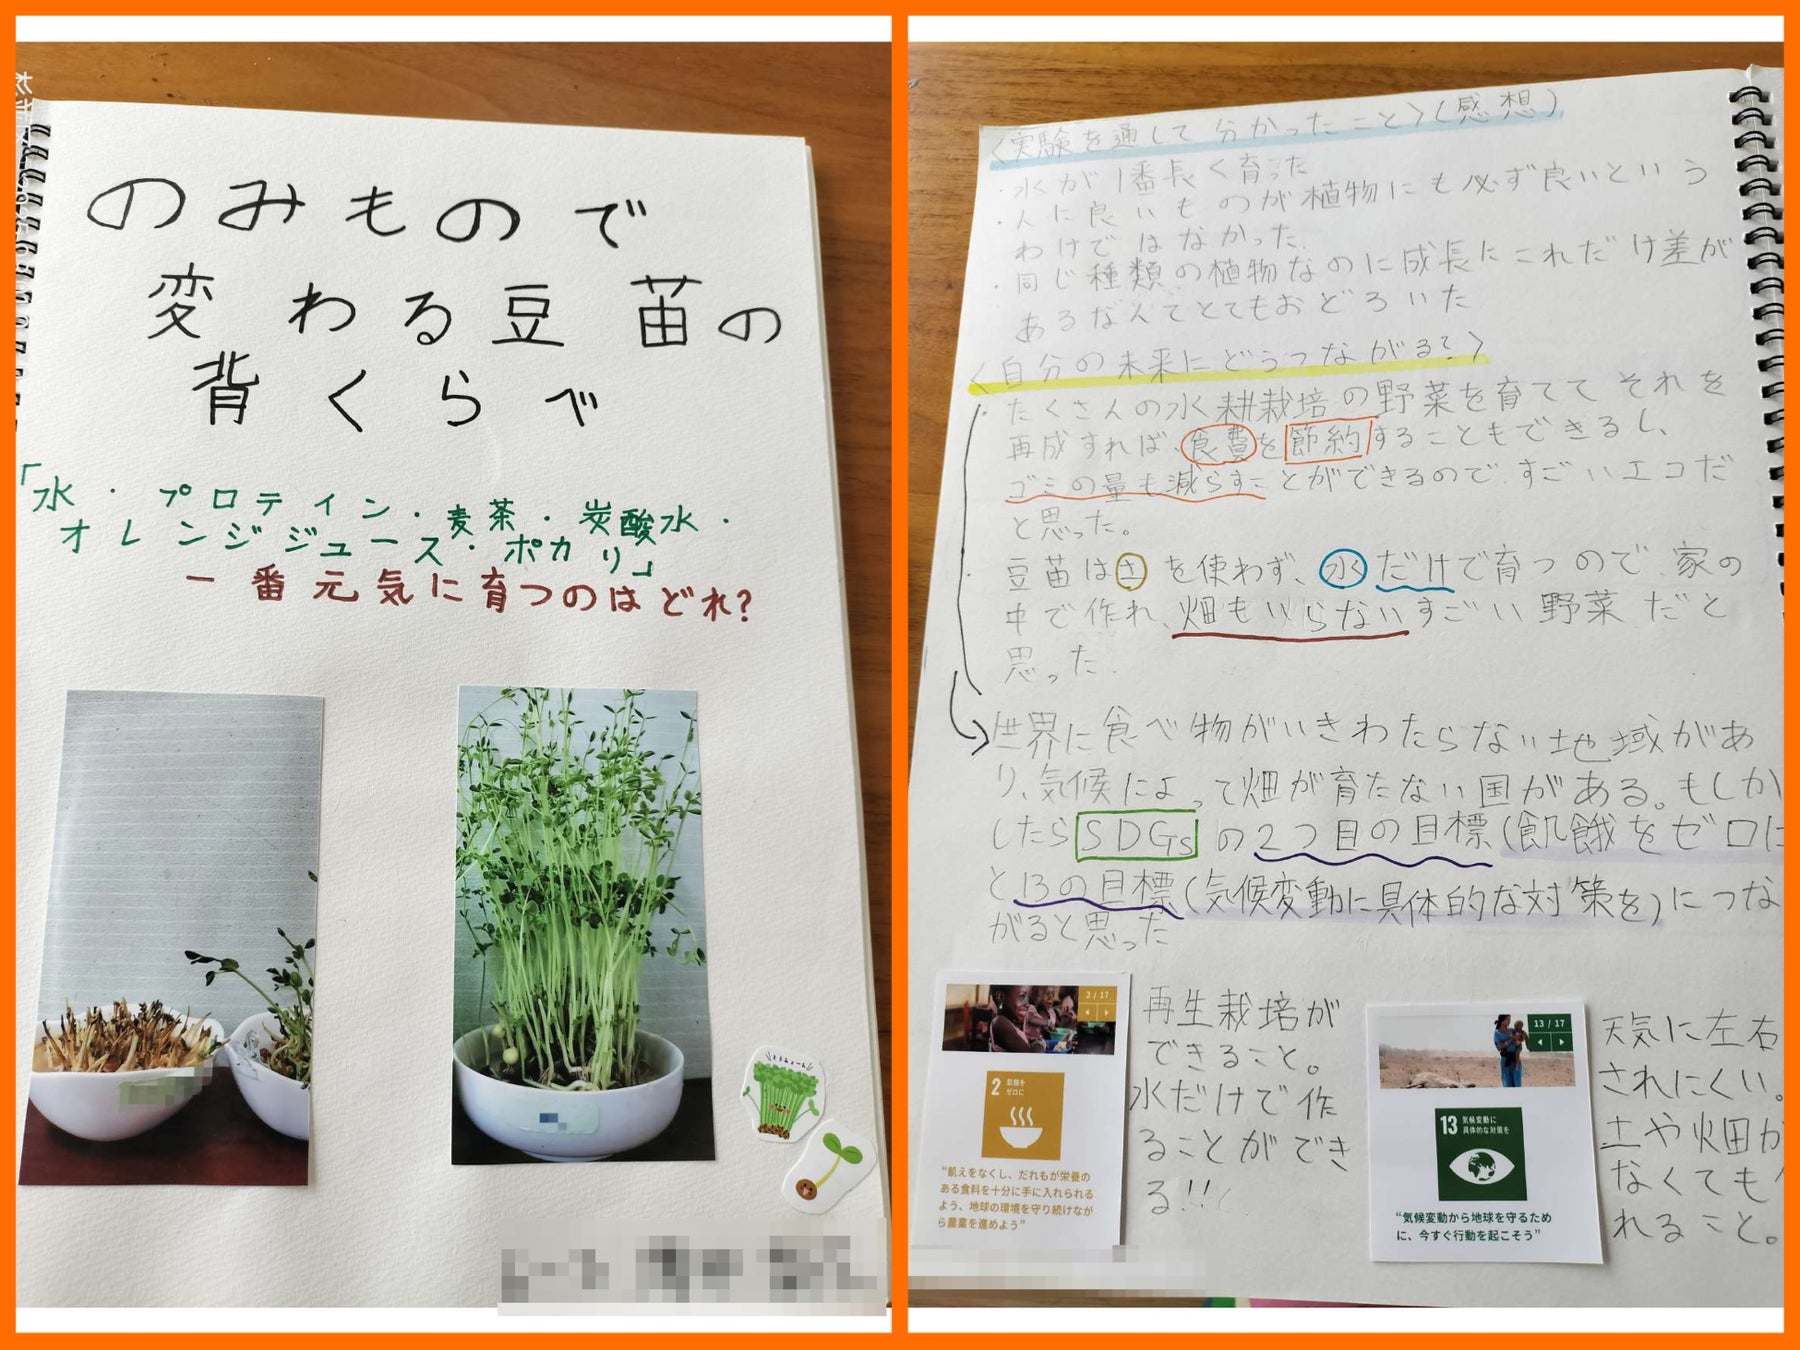 のみもので
変わる豆苗の
背くらべ
「水・プロテイン・麦茶・炭酸水・
オレンジジュース・ポカリ」
一番元気に育つのはどれ?
〈実験を通して分かったこと〉(感想)
・水が1番長く育った
・人に良いものが植物にも必ず良いという
わけではなかった。
・同じ種類の植物なのに成長にこれだけ差が
あるなんてとてもおどろいた
〈自分の未来にどうつながる?〉
・たくさんの水耕栽培の野菜を育ててそれを
再成すれば、食費を節約することもできるし、
ゴミの量も減らすことができるので、すごいエコだ
と思った。
・豆苗は土を使わず、水だけで育つので家の
中で作れ、畑もいらないすごい野菜だと
思った。
世界に食べ物がいきわたらない地域があ
り、気候によって畑が育たない国がある。もしか
したらSDGsの2つ目の目標(飢餓をゼロに
と13の目標(気候変動に具体的な対策を)につな
がると思った
2/17
2 飢餓を
ゼロに
"飢えをなくし、だれもが栄養の
ある食料を十分に手に入れられる
よう、地球の環境を守り続けなが
ら農業を進めよう"
再生栽培が
できること。
水だけで作
ることができ
る!!
13/17
13 気候変動に
具体的な対策を
"気候変動から地球を守るため
に、今すぐ行動を起こそう"
天気に左右
されにくい。
土や畑が
なくても
れること。